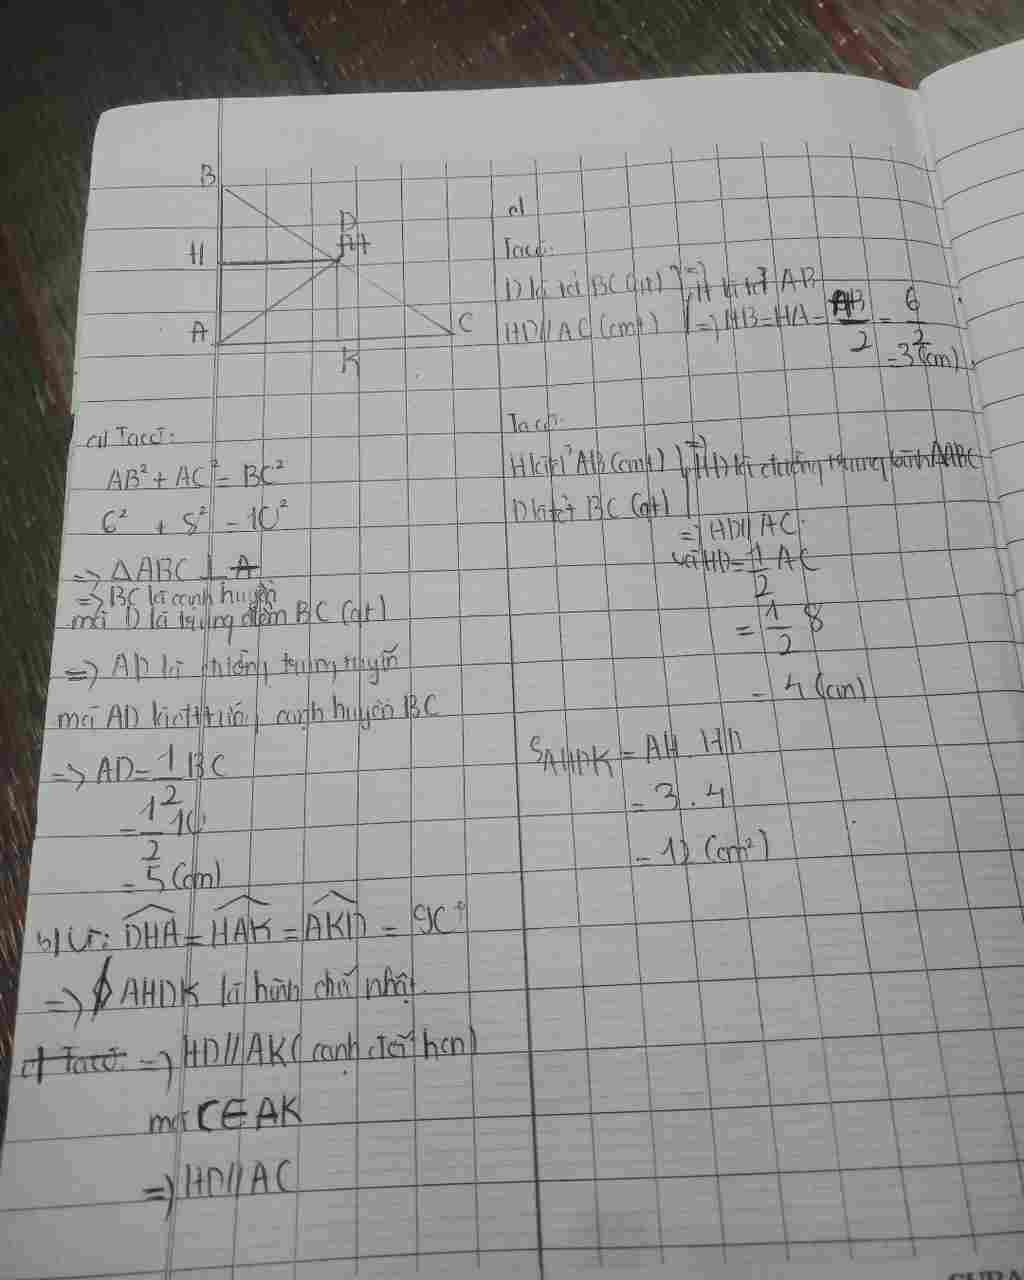 B
D
H
A
C
K
a/ Ta có:
AB² + AC² = BC²
6² + 8² = 10²
=> △ABC ⊥ A
=> BC là cạnh huyền
mà D là trung điểm BC (gt)
=> AD là đường trung tuyến
mà AD là đtt ứng cạnh huyền BC
=> AD = 1/2 BC
= 1/2 10
= 5 (cm)
b/ Vì: DHA = HAK = AKD = 90°
=> AHDK là hình chữ nhật
c/ Ta có: => HD // AK (cạnh đối hcn)
mà C ∈ AK
=> HD // AC
d
Ta có:
D là tđ BC (gt) } => H là tđ AB
HD // AC (cmt) => HB = HA = AB/2 = 6/2
= 3 (cm)
Ta có:
H là tđ AB (cmt) } => HD là đường trung bình △ABC
D là tđ BC (gt)
=> HD // AC
và HD = 1/2 AC
= 1/2 8
= 4 (cm)
S AHDK = AH . HD
= 3 . 4
= 12 (cm²)